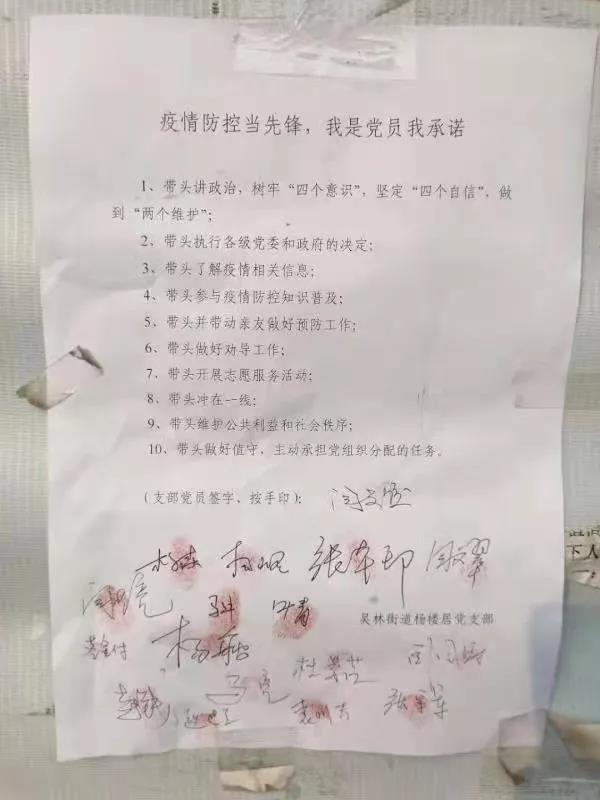 疫情防控当先锋，我是党员我承诺
1、带头讲政治，树牢“四个意识”，坚定“四个自信”，做
到“两个维护”；
2、带头执行各级党委和政府的决定；
3、带头了解疫情相关信息；
4、带头参与疫情防控知识普及；
5、带头并带动亲友做好预防工作；
6、带头做好劝导工作；
7、带头开展志愿服务活动；
8、带头冲在一线；
9、带头维护公共利益和社会秩序；
10、带头做好值守，主动承担党组织分配的任务。
（支部党员签字、按手印）：
吴林街道杨楼居党支部
下人